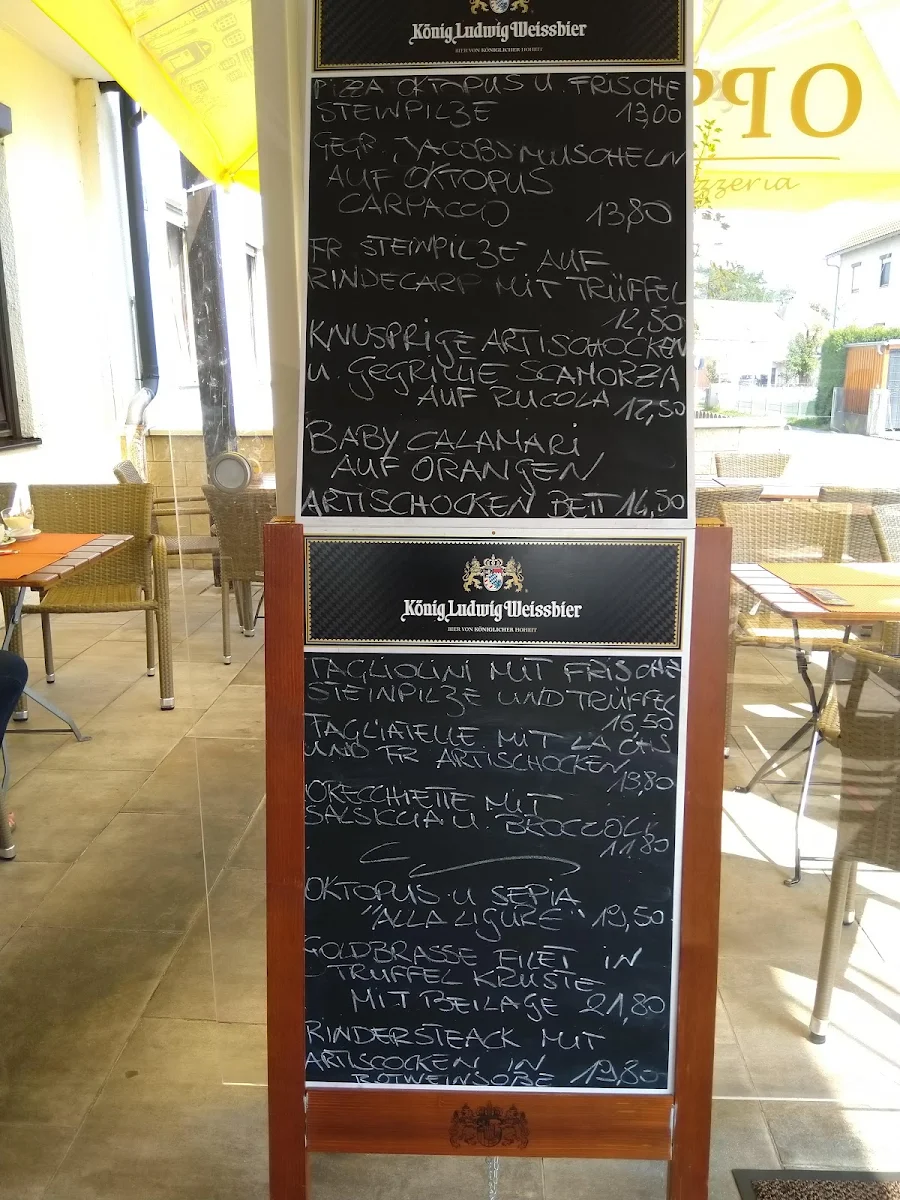 König Ludwig Weissbier
BIER VON KÖNIGLICHER HOHEIT
PIZZA OKTOPUS U. FRISCHE
STEINPILZE 13,00
GEGR. JACOBSMUSCHELN
AUF OKTOPUS
CARPACCIO 13,80
FR STEINPILZE AUF
RINDECARP MIT TRÜFFEL
12,50
KNUSPRIGE ARTISCHOCKEN
U. GEGRILLTE SCAMORZA
AUF RUCOLA 12,50
BABY CALAMARI
AUF ORANGEN
ARTISCHOCKEN BETT 14,50
OPP
zzeria
König Ludwig Weissbier
BIER VON KÖNIGLICHER HOHEIT
TAGLIOLINI MIT FRISCHE
STEINPILZE UND TRÜFFEL
16,50
TAGLIATELLE MIT LACHS
UND FR ARTISCHOCKEN
13,80
ORECCHIETTE MIT
SALSICCIA U. BROCCOLI
11,80
OKTOPUS U SEPIA
"ALLA LIGURE" 19,50
GOLDBRASSE FILET IN
TRÜFFEL KRUSTE
MIT BEILAGE 21,80
RINDERSTEACK MIT
ARTISCOCKEN IN
ROTWEINSOßE 19,80